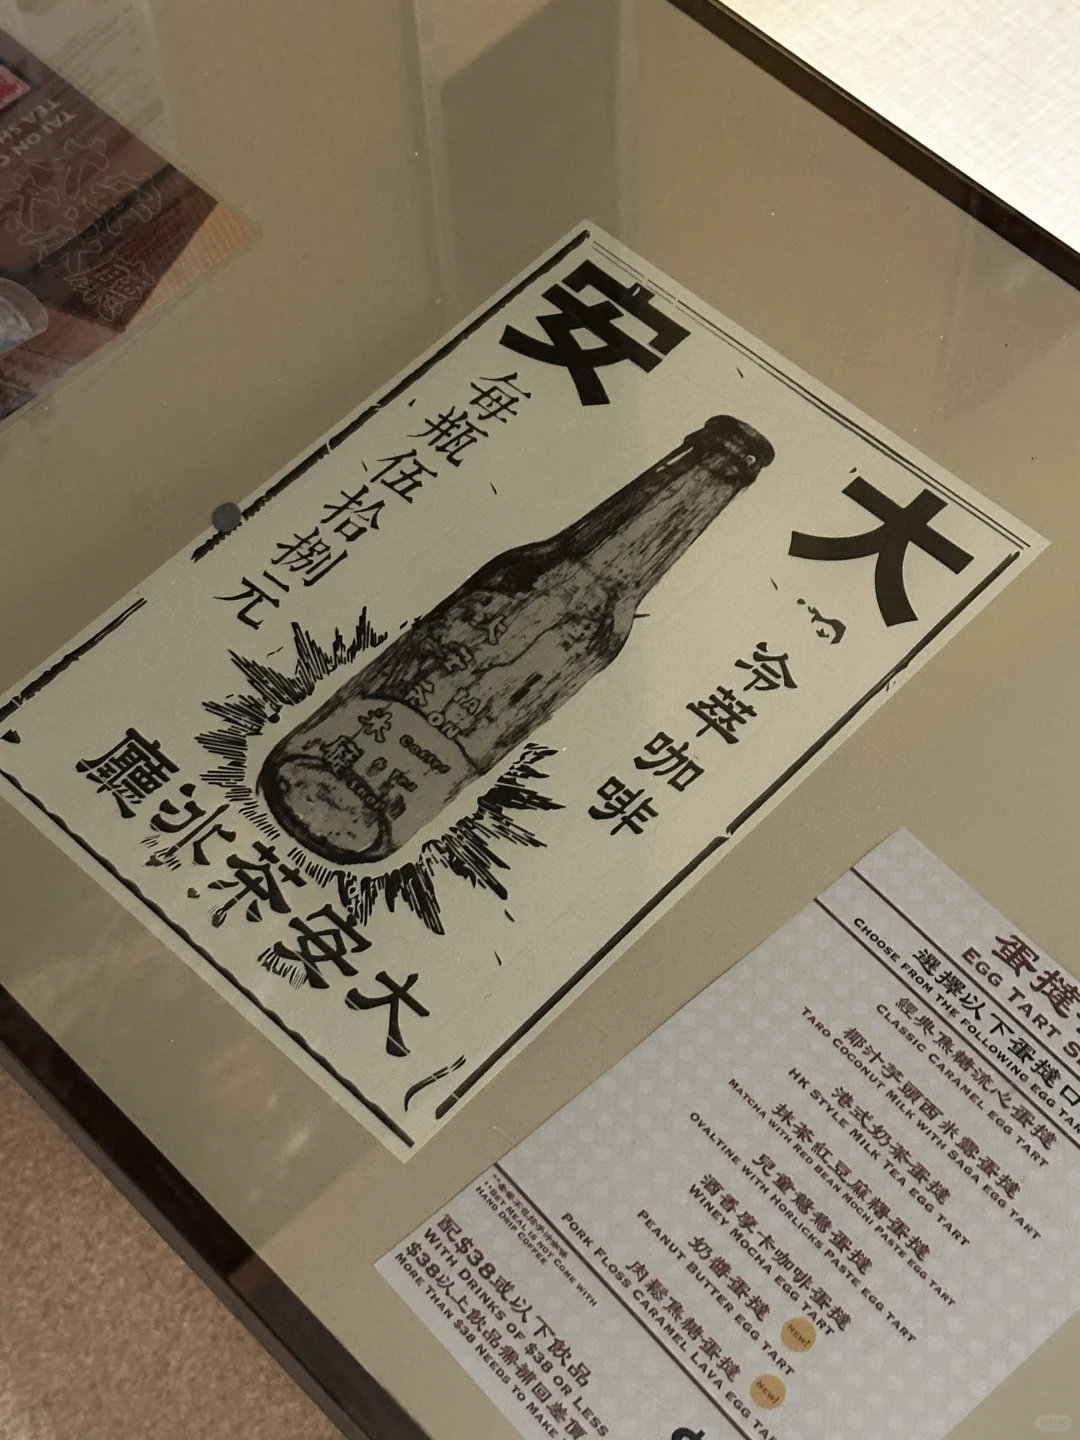 TAI ON C
TEA SH
大安
冷萃咖啡
每瓶伍拾捌元
大安茶冰廳
TAI ON
冰
Coffee
& Tea
蛋撻
EGG TART S
選擇以下蛋撻口
CHOOSE FROM THE FOLLOWING EGG TAR
經典焦糖流心蛋撻
CLASSIC CARAMEL EGG TART
椰汁芋頭西米露蛋撻
TARO COCONUT MILK WITH SAGA EGG TART
港式奶茶蛋撻
HK STYLE MILK TEA EGG TART
抹茶紅豆麻糬蛋撻
MATCHA WITH RED BEAN MOCHI PASTE EGG TART
兒童鴛鴦蛋撻
OVALTINE WITH HORLICKS PASTE EGG TART
酒香摩卡咖啡蛋撻
WINEY MOCHA EGG TART
奶醬蛋撻
NEW!
PEANUT BUTTER EGG TART
肉鬆焦糖蛋撻
NEW!
PORK FLOSS CARAMEL LAVA EGG TA
**SET MEAL IS NOT COME WITH
HAND DRIP COFFEE
配$38或以下飲品
WITH DRINKS OF $38 OR LESS
$38以上飲品需補回差價
MORE THAN $38 NEEDS TO MAKE